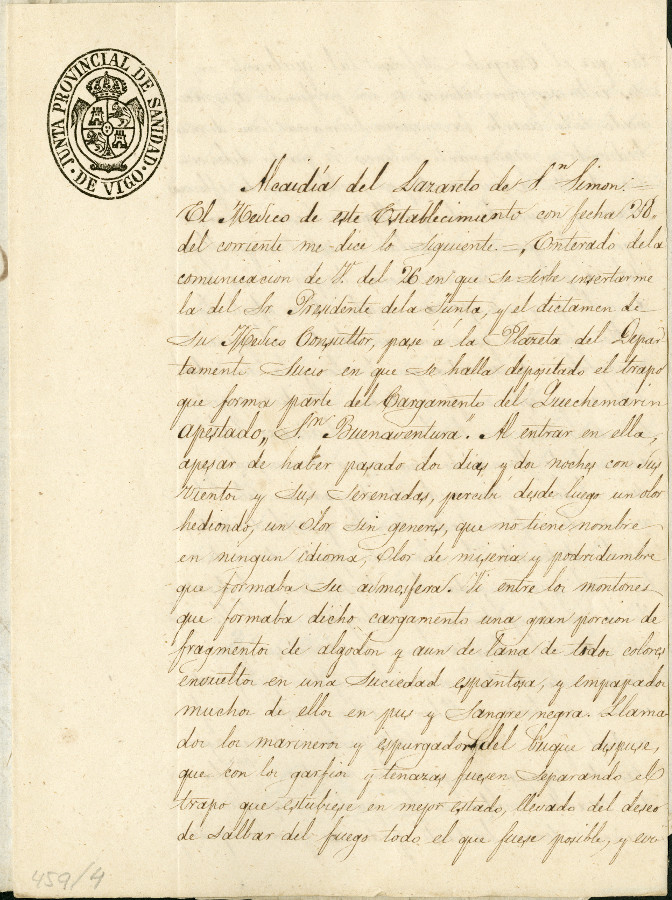 JUNTA PROVINCIAL DE SANIDAD
· DE VIGO. ·
Alcaidía del Lazareto de S.n Simon. =
El Medico de este Establecimiento con fecha 28.
del corriente me dice lo siguiente. = „Enterado dela
comunicacion de V. del 26 en que se sirbe insertarme
la del Sr. Presidente dela Junta, y el dictamen de
su Medico Consultor, pasé á la Plazeta del Depar
tamento Sucio en que se halla depositado el trapo
que forma parte del Cargamento del Quechemarin
apestado „S.n Buenaventura". Al entrar en ella,
apesar de haber pasado dos dias y dos noches con sus
vientos y sus serenadas, percibí desde luego un olor
hediondo, un olor sin generis, que no tiene nombre
en ningun idioma, olor de miseria y podridumbre
que formaba su atmosfera. Vi entre los montones
que formaba dicho cargamento una gran porcion de
fragmentos de algodon y aun de lana de todos colores
ensueltos en una suciedad espantosa, y empapados
muchos de ellos en pus y sangre negra. Llama
dos los marineros y espurgadores del buque dispuse,
que con los garfios y tenazas fuesen separando el
trapo que estubiese en mejor estado, llevado del deseo
de salbar del fuego todo el que fuese posible, y
459/4